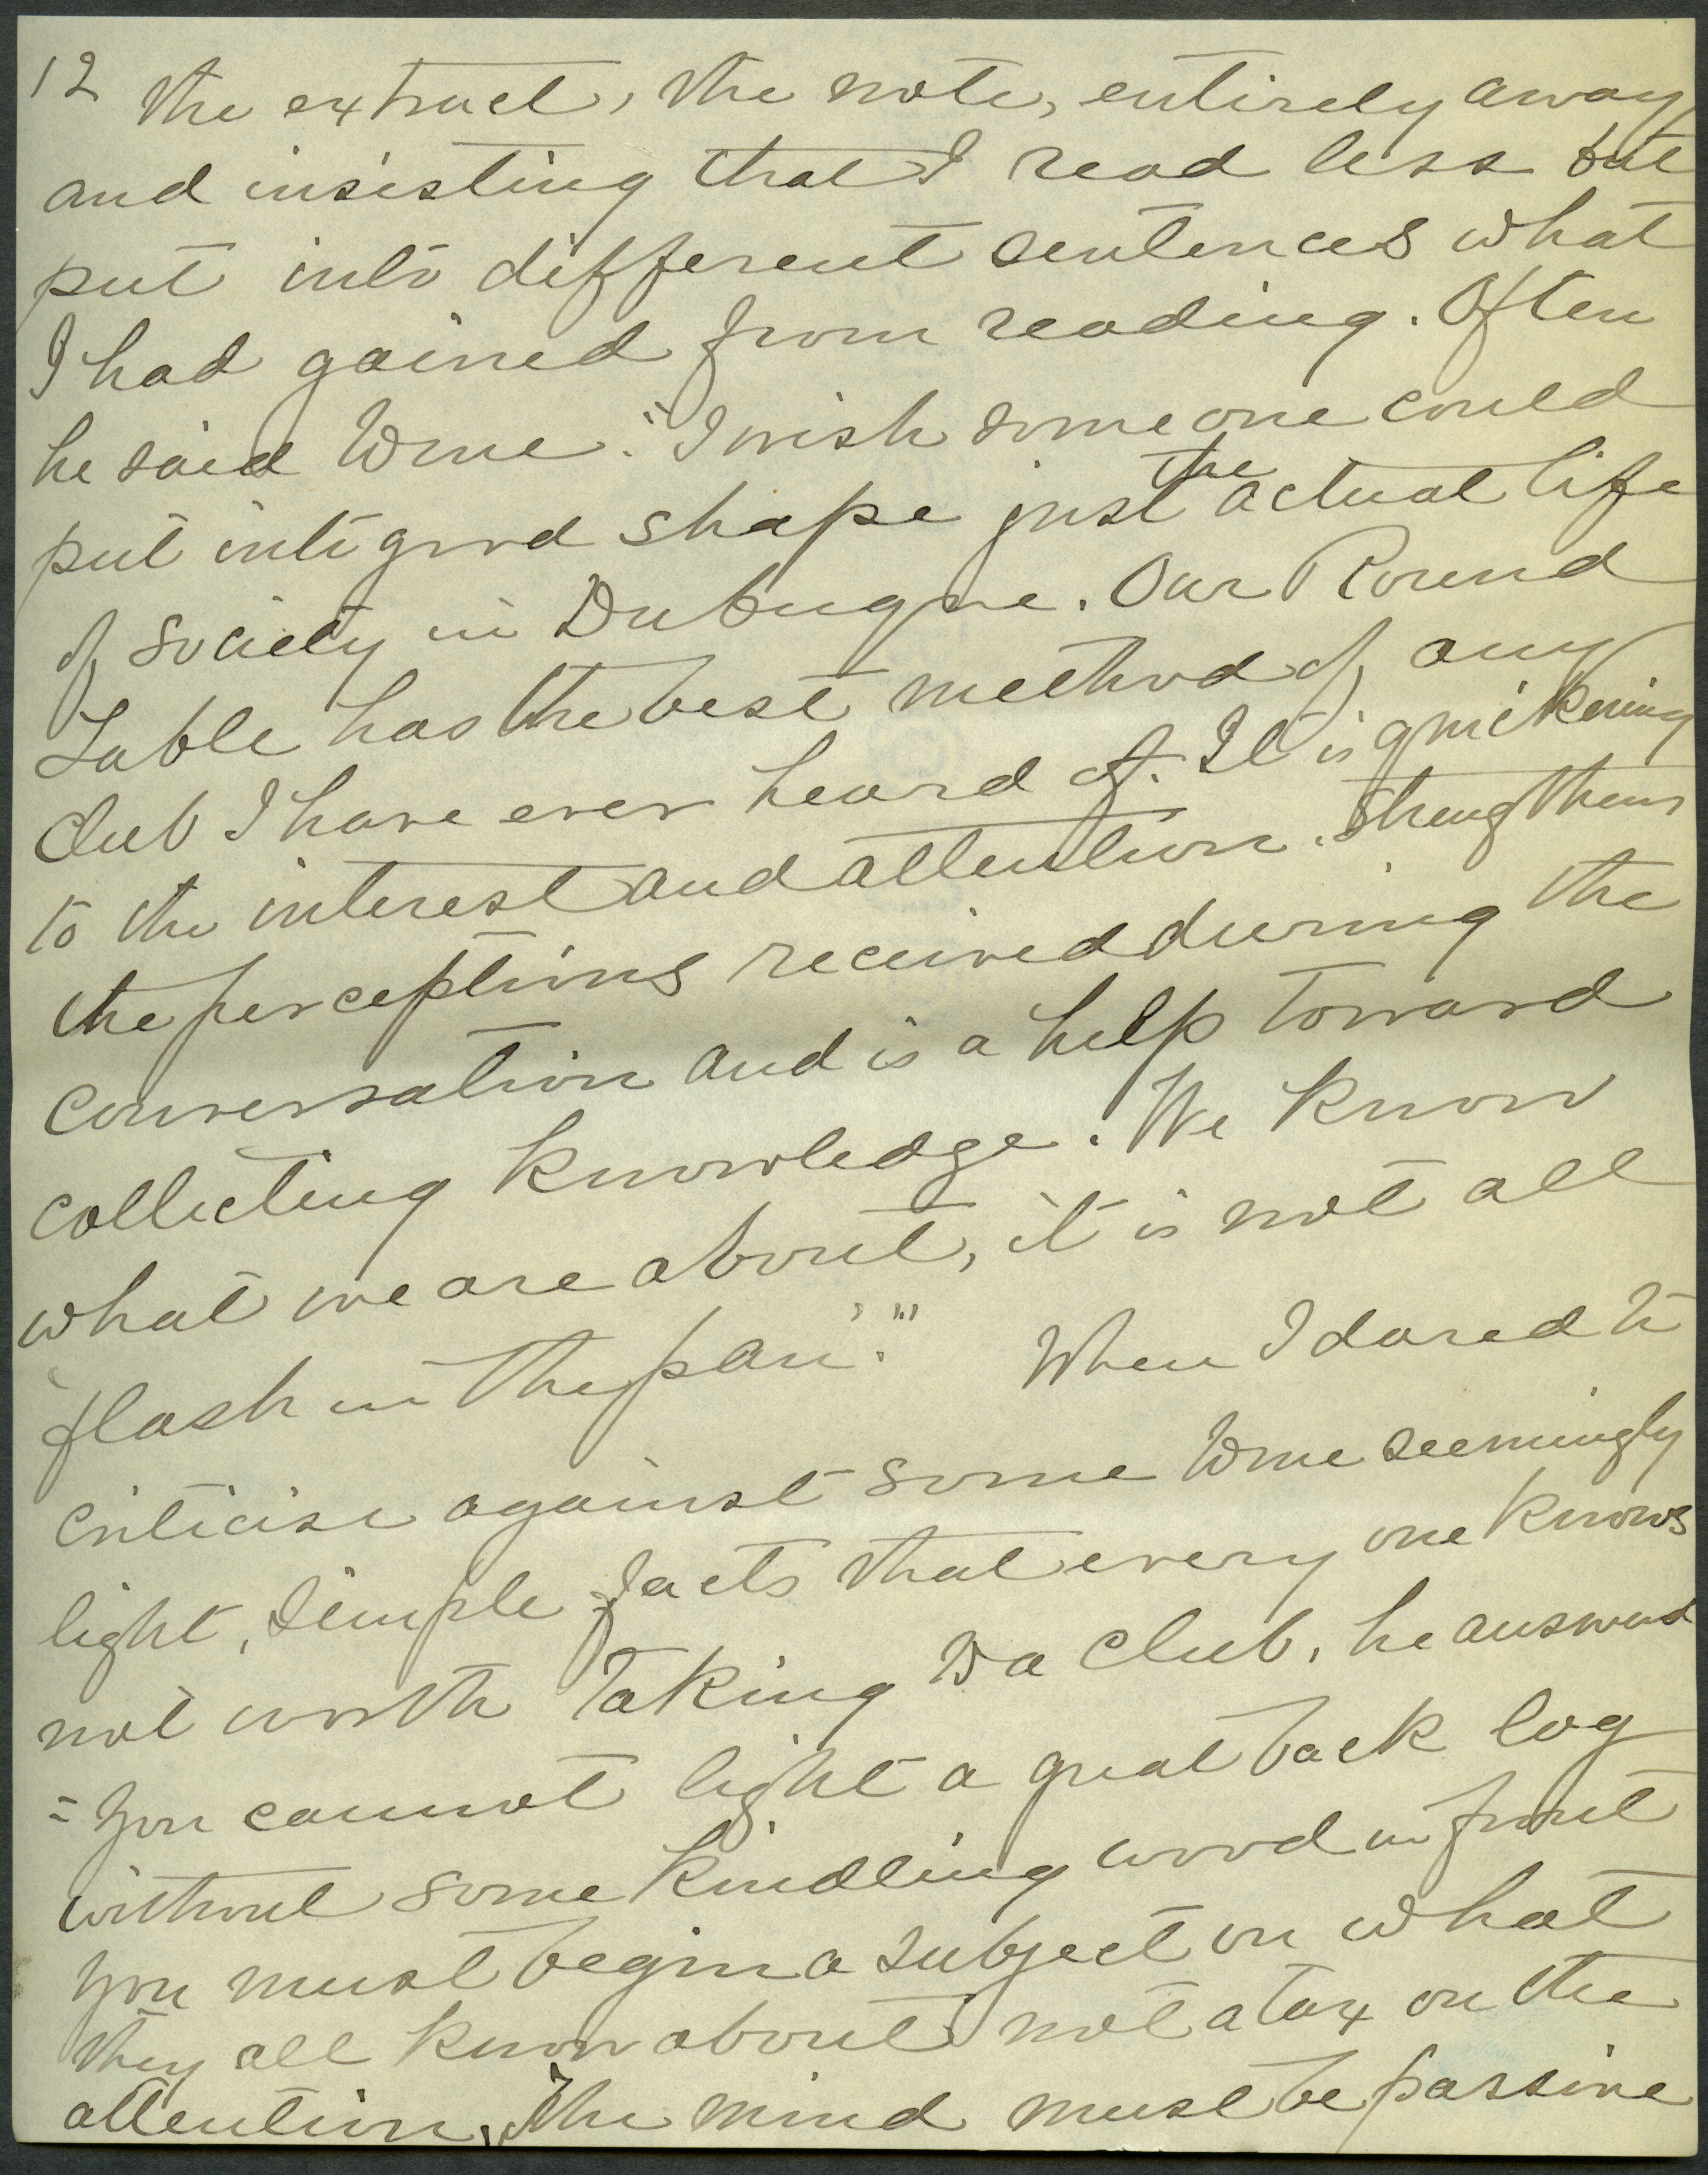 12 the extract, the note, entirely away
and insisting that I read less but
put into different sentences what
I had gained from reading. Often
he said to me: "I wish some one could
the
put into good shape just actual life
of society in Dubuque. Our Round
Table has the best method of any
Club I have ever heard of. It is quickening
to the interest and attention. Strengthens
the perceptions received during the
conversation and is a help toward
collecting knowledge. We know
what we are about, it is not all
'flash in the pan'." When I dared to
criticise against some to me seemingly
light, simple facts that every one knows
not worth taking to a club, he answered
"You cannot light a great back log
without some kindling wood in front
you must begin a subject on what
they all know about not a tax on the
attention, The mind must be passive